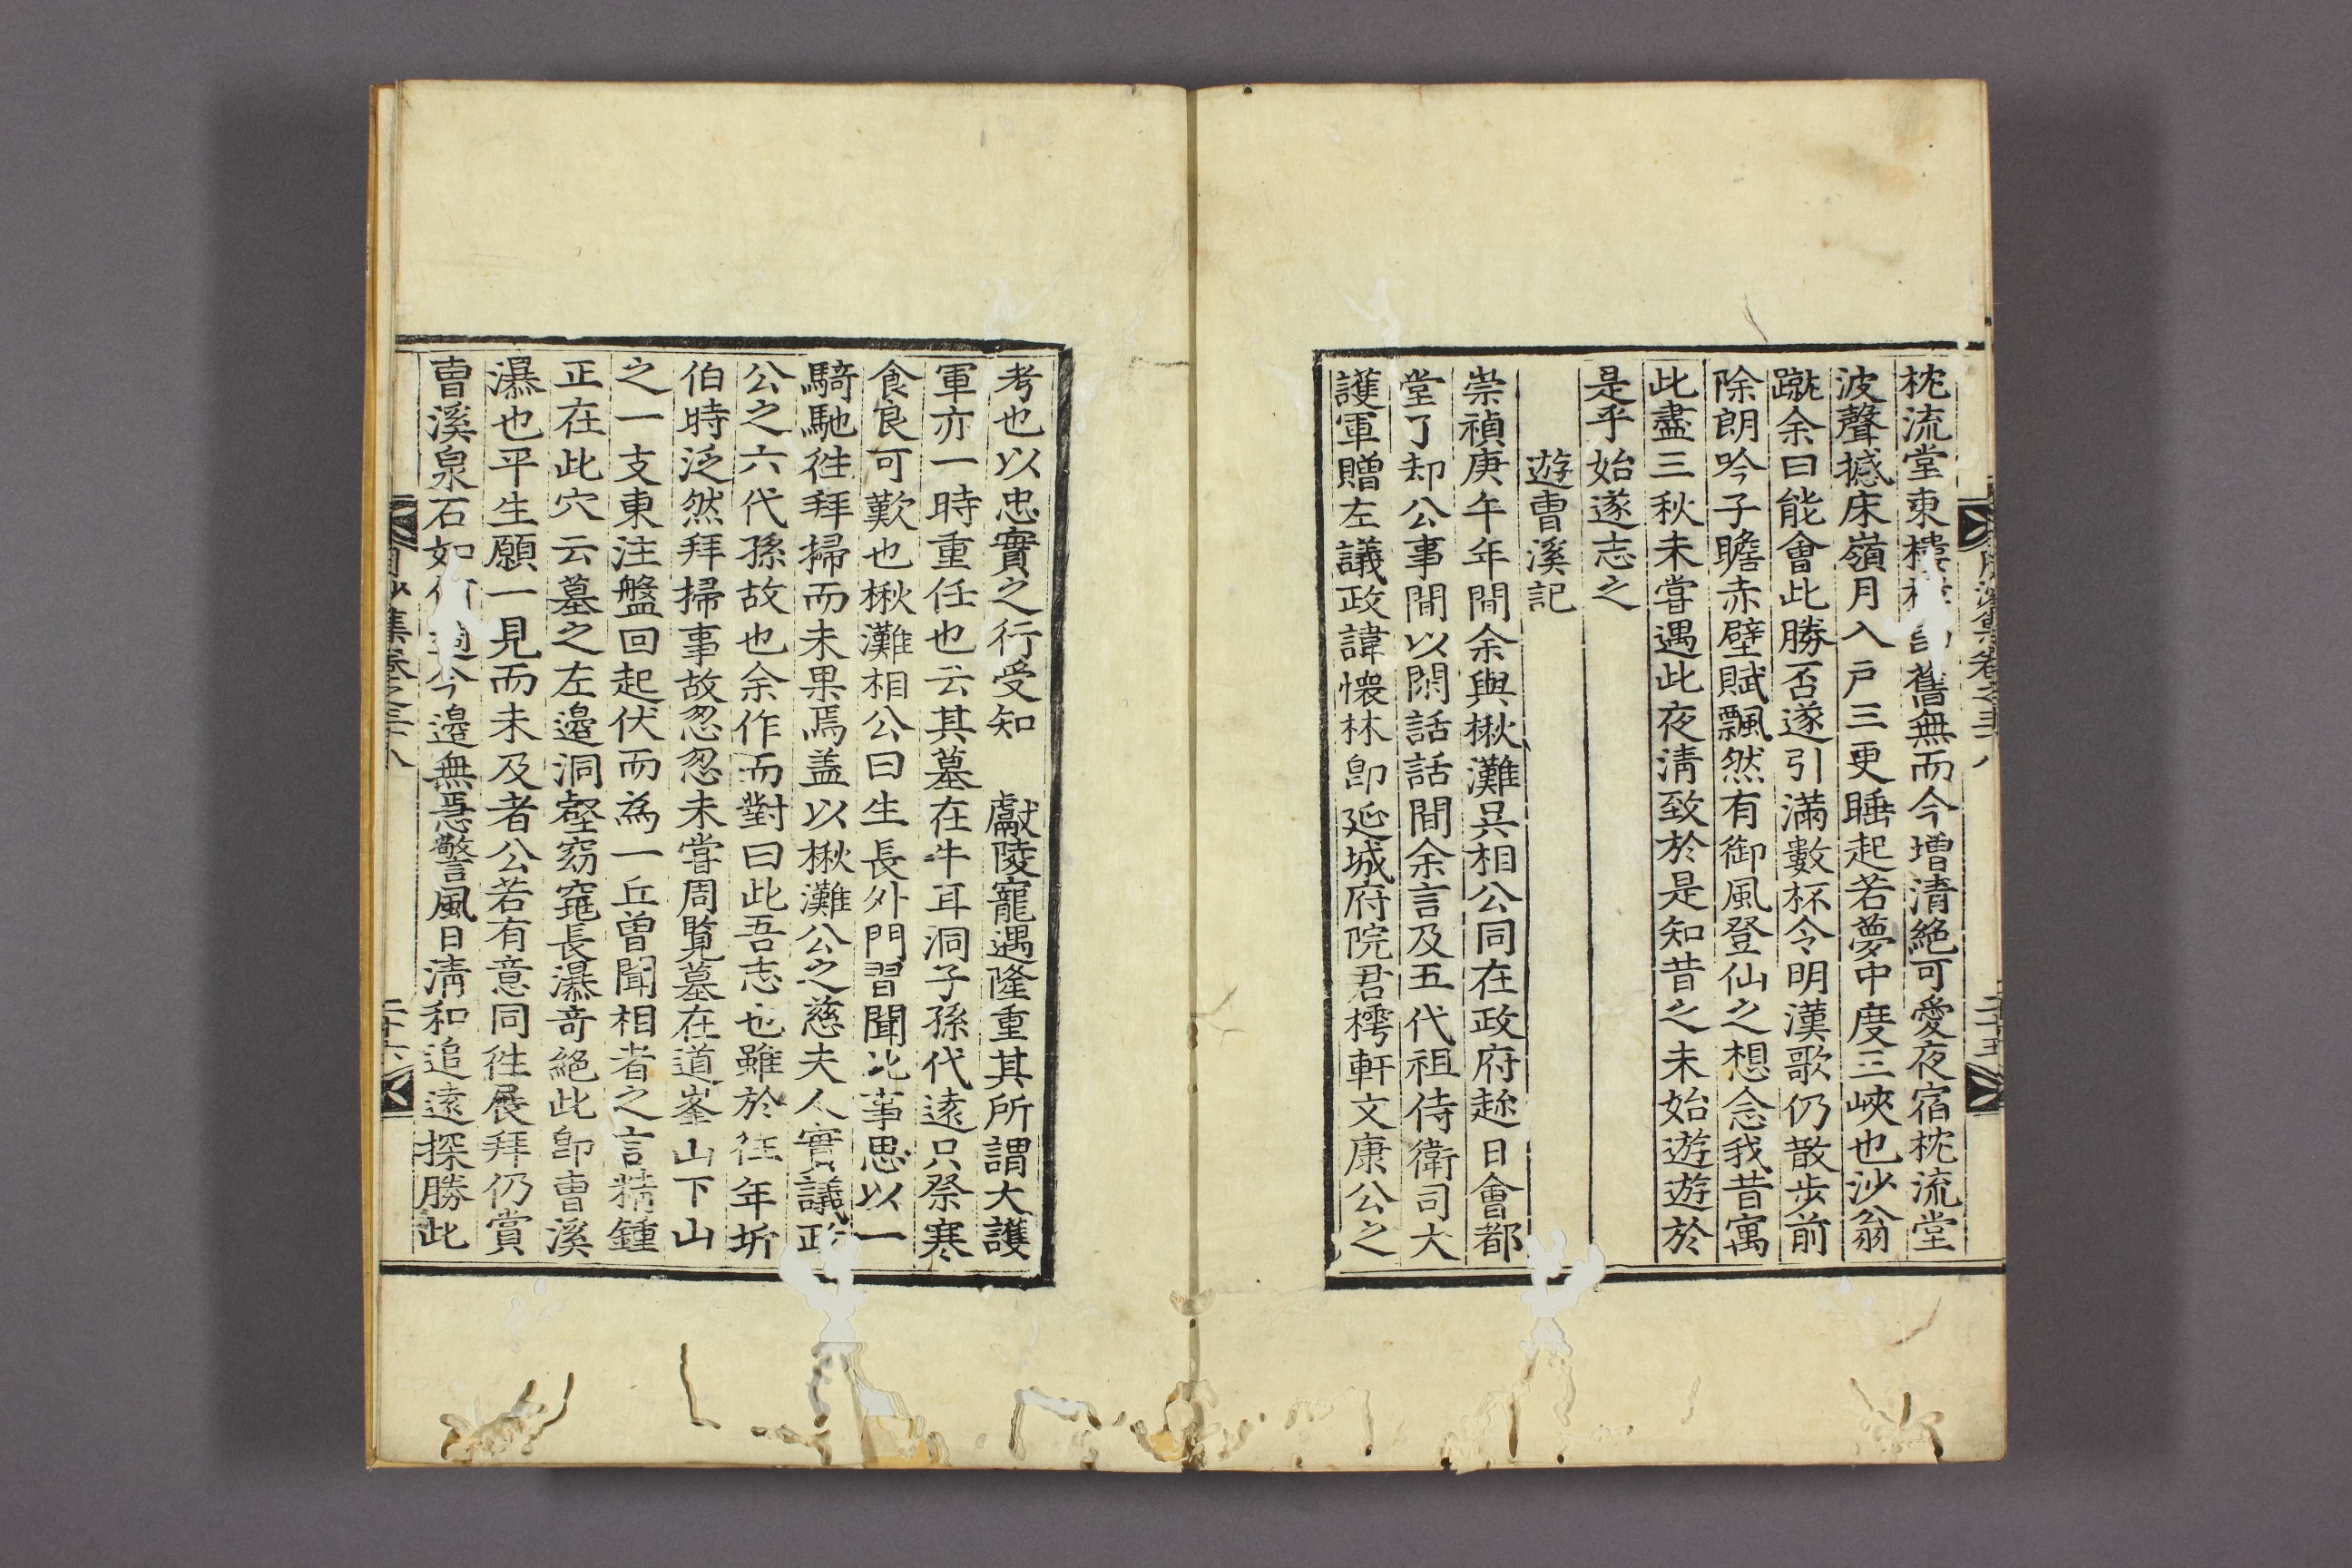 枕流堂東樓
舊無而今增清絶可愛夜宿枕流堂
波聲撼床嶺月入戶三更睡起若夢中度三峽也沙翁
蹴余曰能會此勝否遂引滿數杯令明漢歌仍散步前
除朗吟子瞻赤壁賦飄然有御風登仙之想念我昔寓
此盡三秋未嘗遇此夜淸致於是知昔之未始遊遊於
是乎始遂志之
遊曺溪記
崇禎庚午年間余與楸灘吳相公同在政府趂日會都
堂了却公事間以閑話話間余言及五代祖侍衛司大
護軍贈左議政諱懷林卽延城府院君樗軒文康公之
考也以忠實之行受知 獻陵寵遇隆重其所謂大護
軍亦一時重任也云其墓在牛耳洞子孫代遠只祭寒
食良可歎也楸灘相公曰生長外門習聞此事思以一
騎馳徃拜掃而未果焉盖以楸灘公之慈夫人實議政
公之六代孫故也余作而對曰此吾志也雖於徃年圻
伯時泛然拜掃事故忽忽未嘗周覽墓在道峯山下山
之一支東注盤回起伏而為一丘曾聞相者之言精鍾
正在此穴云墓之左邊洞壑窈窕長瀑奇絶此卽曺溪
瀑也平生願一見而未及者公若有意同徃展拜仍賞
曺溪泉石如何
今邊無惎警風日淸和追遠探勝此
月沙集卷之三十八
二十五
月沙集卷之三十八
二十六